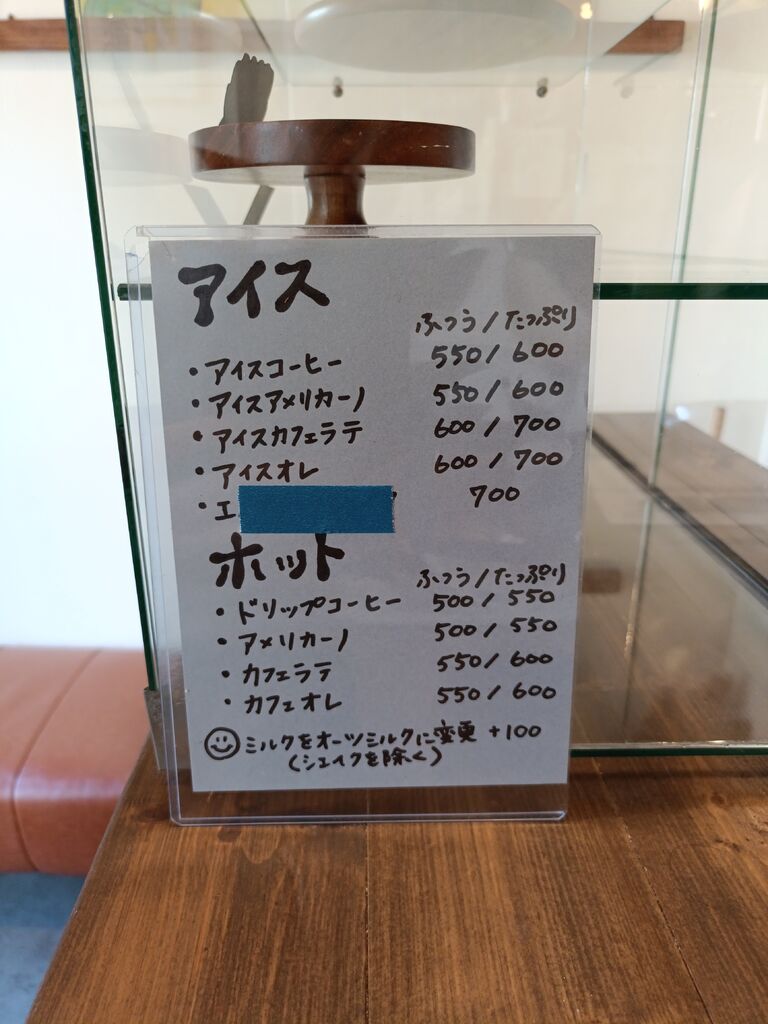 アイス
ふつう/たっぷり
・アイスコーヒー 550/600
・アイスアメリカーノ 550/600
・アイスカフェラテ 600/700
・アイスオレ 600/700
・エ 700
ホット
ふつう/たっぷり
・ドリップコーヒー 500/550
・アメリカーノ 500/550
・カフェラテ 550/600
・カフェオレ 550/600
ミルクをオーツミルクに変更 +100
(シェイクを除く)